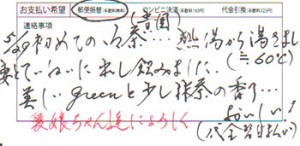 お支払い希望 郵便振替(手数料無料) コンビニ決済(手数料100円) 代金引換(手数料315円)
連絡事項 (黄園)
5/29 初めての白茶… 熱湯から湯さまし
(≒60℃)
妻とていねいに出し飲みました…
美しいgreenと少し抹茶の香り…
おいしい!
愛娘ちゃん達によろしく (代金習日払い)